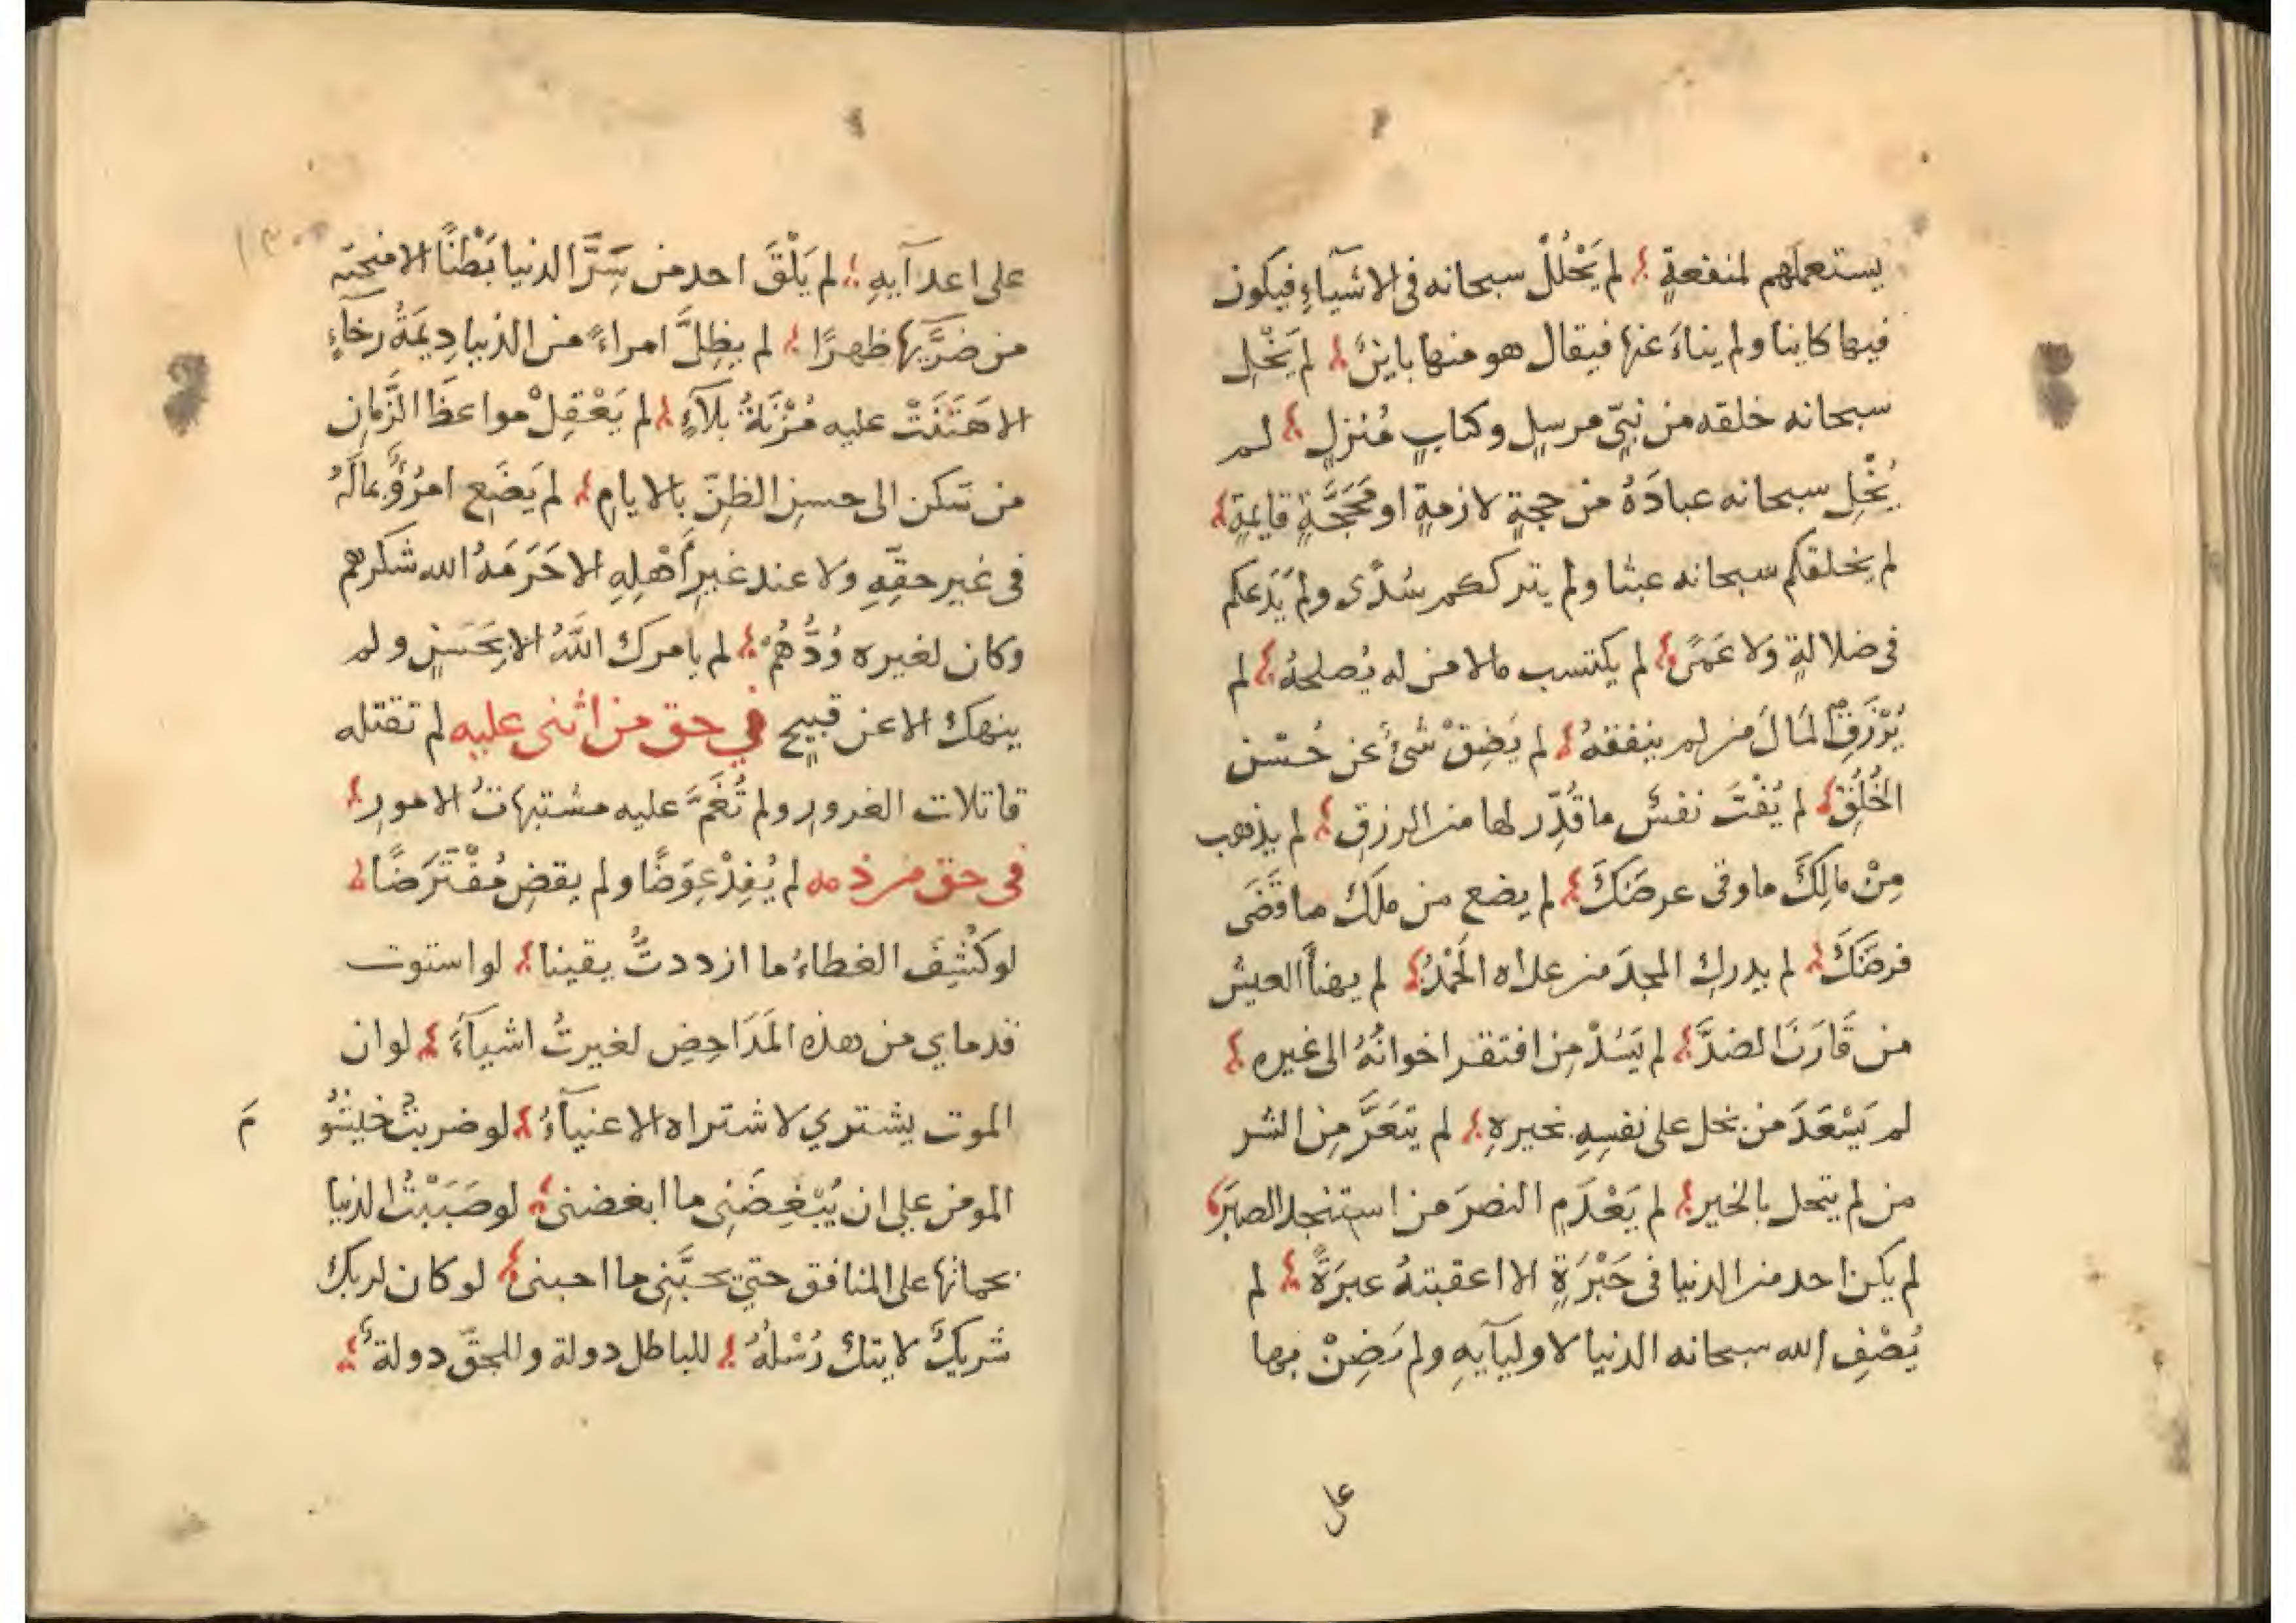 يستعملهم لمنفعةٍ لم يَحْلُلْ سبحانه فى الاشيآءِ فيكون
فيها كاينا ولم يناءَ عنها فيقال هو منها باينٌ لم يَخْلِ
سبحانه خلقه من نبيٍّ مرسلٍ وكتابٍ مُنزلٍ لم
يُخْلِ سبحانه عبادَهُ من حجةٍ لازمةٍ او مَحَجَّةٍ قايمةٍ
لم يخلقكم سبحانه عبثا ولم يترككم سُدًى ولم يَدَعكم
فى ضلالةٍ وَلا عَمًى لم يكتسب مالا من له يُصلحهُ لم
يُرْزَقِ المَالَ من لم ينفقهُ لم يَضِقْ شىٌ عن حُسْن
الخُلُقِ لم يُفْتَ نفسٌ ما قُدِّر لها من الرزقِ لم يذهب
مِنْ مالِكَ ما وقى عرضَكَ لم يضع من ملك ما قَضَى
فرضَكَ لم يدركِ المجدَ من عداه الحَمْدُ لم يهنأ العيش
من قَارَنَ الضدَّ لم يَسُدْ مِن افتقر اخوانُهُ الى غيره
لم يَسْعَدَ من بخل على نفسِهِ بخيرهِ لم يتعَرَّ مِن الشر
من لم يتحل بالخير لم يَعْدَمِ النصرَ من استنجد الصبرَ
لم يكن احد من الدنيا فى حَبْرَةٍ الا اعقبتهُ عبرَةً لم
يُصْفِ الله سبحانه الدنيا لاوليآيهِ ولم يَضِنْ بها
على
على اعدآيهِ لم يَلْقَ احد من سَرَّا الدنيا بَطْنًا الا منحته
من ضَرَّيها ظهرًا لم يظِلَّ امراءً من الدنيا دِيمَةُ رخآءٍ
الا هَتَنَتْ عليه مُزْنَةُ بلآءٍ لم يَعْقِلْ مواعظَ الزَّمانِ
من سَكن الى حسنِ الظنِّ بالايامِ لم يَضَعِ امرُؤٌ مالَهُ
فى غير حقِّهِ وَلا عند غيرِ أهْلِهِ الا حَرَمَهُ الله شكرهم
وكان لغيره وُدُّهُمْ لم يامرك اللّهُ الا بِحَسَنٍ ولم
ينهك الا عن قبيحٍ في حق من اثنى عليه لم تقتله
قاتلات الغرورِ ولم تُغَمَّ عليه مشتبهاتُ الامورِ
فى حق من ذمه لم يُفِدْ عِوَضًا ولم يقضِ مُفْتَرَضًا
لو كُشِفَ الغطاءُ ما ازددتُّ يقينا لو استوت
قدماي من هذه المَدَاحِضِ لغيرتُ اشيآءَ لو ان
الموت يشتري لاشتراه الاغنيآءُ لو ضربتُ خيشو
مَ
المومن علي ان يُبْغِضَنِى ما ابغضنى لو صَبَبْتُ الدنيا
بجماتها على المنافق حتي يحبَّنِى ما احبنى لو كان لربك
شَريكٌ لاتتك رُسْلُهُ للباطل دولة وللحقّ دولةٌ